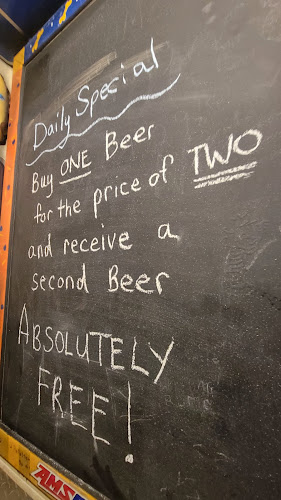 Daily Special
Buy ONE Beer
for the price of TWO
and receive a
second Beer
ABSOLUTELY
FREE!